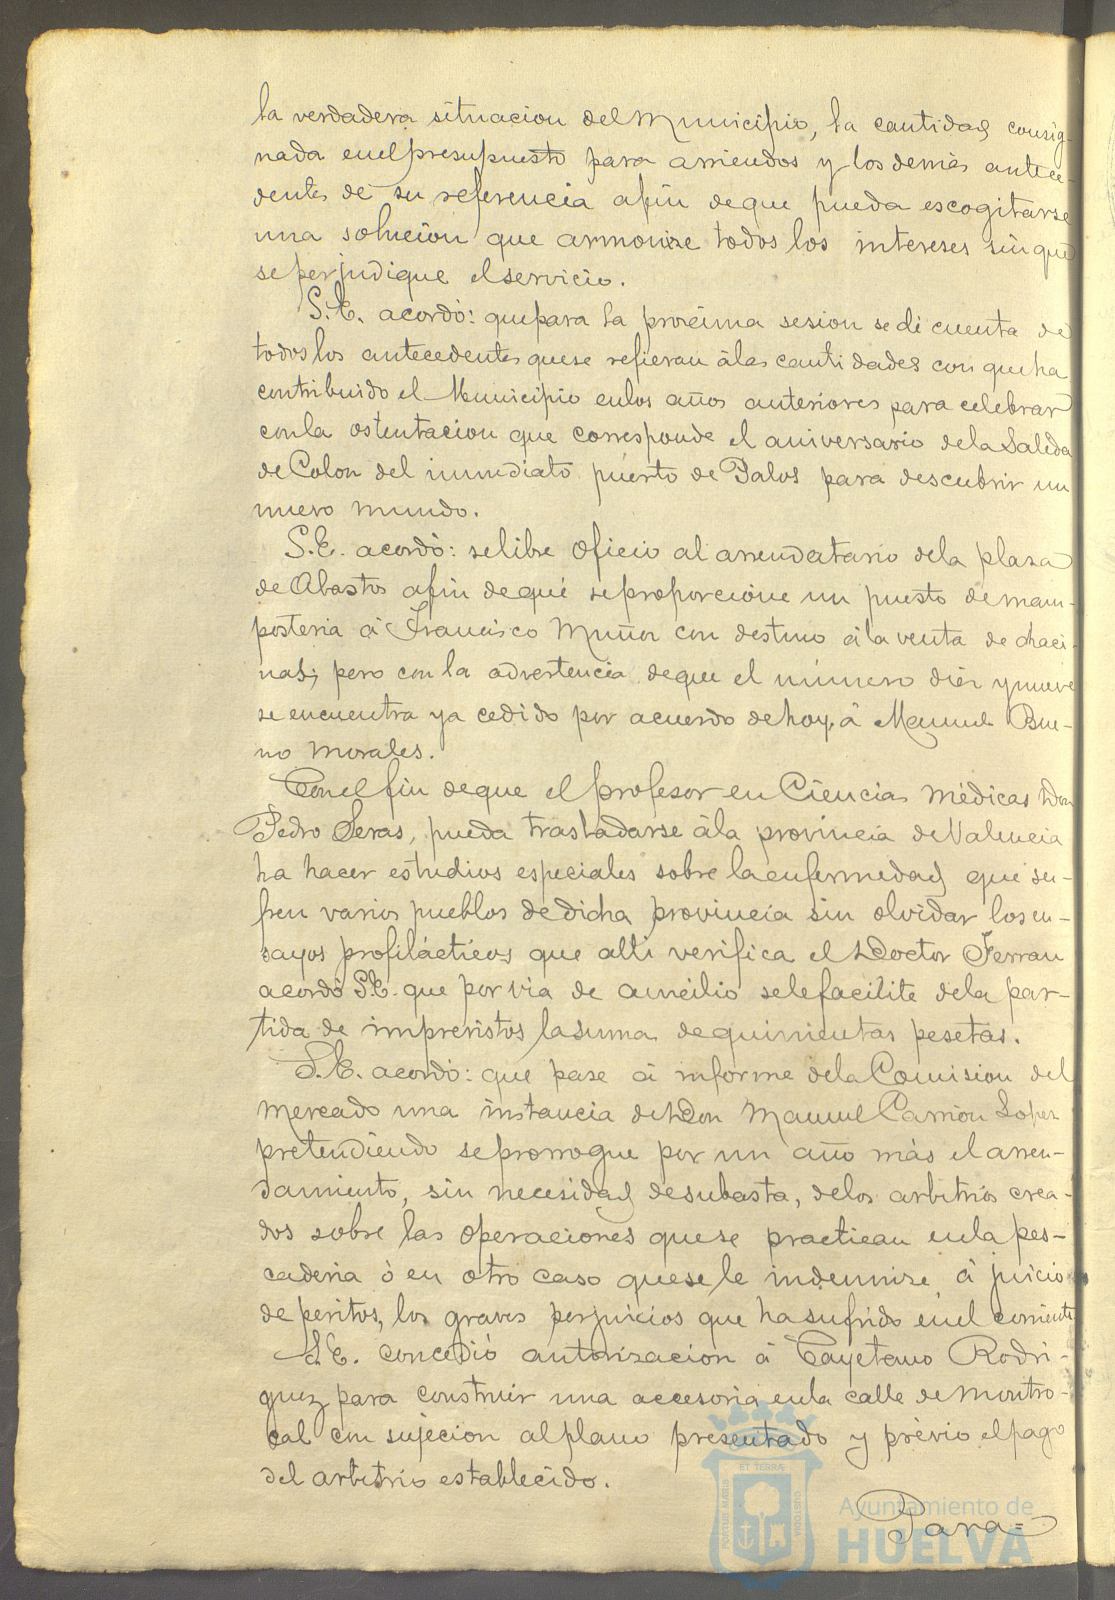 la verdadera situacion del Municipio, la cantidad consig-
nada en el presupuesto para arriendos y los demas antece-
dentes de su referencia afin de que pueda escogitarse
una solucion que armonize todos los intereses sin que
se perjudique el servicio.
S.E. acordó: que para la procsima sesion se dé cuenta de
todos los antecedentes que se refieran á las cantidades con que ha
contribuido el Municipio en los años anteriores para celebrar
con la ostentacion que corresponde el aniversario de la Salida
de Colon del inmediato puerto de Palos para descubrir un
nuevo mundo.
S.E. acordó: se libre oficio al arrendatario de la plaza
de Abastos afin de que se proporcione un puesto de mam-
posteria á Francisco Muñoz con destino á la venta de chaci-
nas; pero con la advertencia de que el número diez y nueve
se encuentra ya cedido por acuerdo de hoy á Manuel Bue-
no Morales.
Con el fin de que el profesor en Ciencias Médicas Don
Pedro Seras, pueda trasladarse á la provincia de Valencia
ha hacer estudios especiales sobre la enfermedad que su-
fren varios pueblos de dicha provincia sin olvidar los en-
sayos profilácticos que allí verifica el Doctor Ferran
acordó S.E. que por via de aucsilio se le facilite de la par-
tida de imprevistos la suma de quinientas pesetas.
S.E. acordó: que pase á informe de la Comision del
Mercado una instancia de Don Manuel Carrion Lopez
pretendiendo se prorrogue por un año más el arren-
damiento, sin necesidad de subasta, de los arbitrios crea-
dos sobre las operaciones que se practican en la pes-
caderia ó en otro caso que se le indemnize á juicio
de peritos, los graves perjuicios que ha sufrido en el corriente
S.E. concedió autorizacion á Cayetano Rodri-
guez para construir una accesoria en la calle de Montro-
cal con sujecion al plano presentado y prévio el pago
del arbitrio establecido.
Para=
PORTUS MARIS
ET TERRÆ
CUSTODIA
Ayuntamiento de
HUELVA